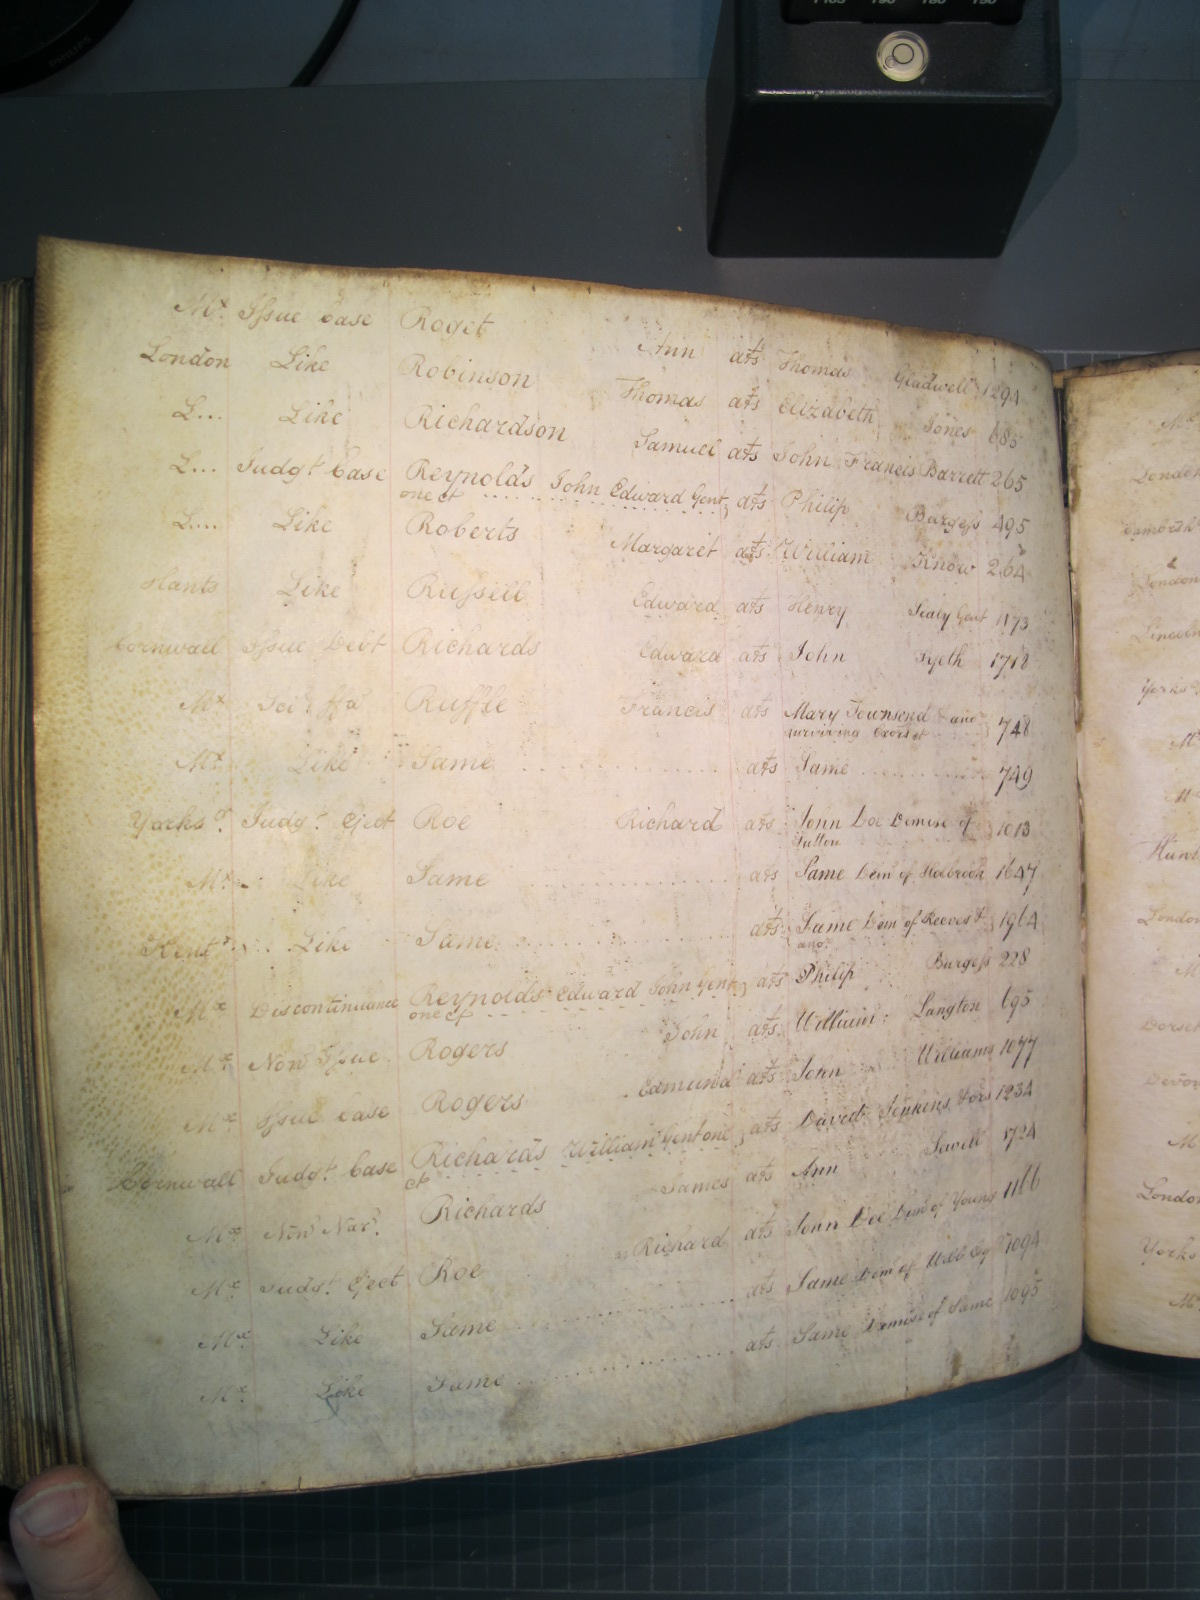 Mx. Issue Case Roget Ann ats Thomas Gladwell 1294
London Like Robinson Thomas ats Elizabeth Jones 685
L... Like Richardson Samuel ats John Francis Barrett 265
L... Judgt Case Reynolds John Edward Gent, ats Philip Burgess 495
one et
L.... Like Roberts Margaret ats William Know 264
Hants Like Russell Edward ats Henry Sealy Gent 1173
Cornwall Issue Debt Richards Edward ats John 1718
Mx Sci: ffa Ruffle Francis ats Mary Townsend 748
surviving
Mx Like Same ats Same 749
Yorks Judgt. Eject Roe Richard ats John Doe Demise of 1013
Sutton
Mx Like Same ats Same Dem of Holbrook 1647
Kent Like Same ats Same Dem of Reeves & 1964
ano:
Mx Discontinuance Reynolds Edward John Gent ats Philip Burgess 228
one et
Mx Non Issue Rogers John ats William Langton 695
Mx Issue Case Rogers Edmund ats John Williams 1077
Cornwall Judgt. Case Richards William Gent one ats David Jenkins 1234
et
Mx Non Nar. Richards James ats Ann Sewell 1724
Mx Judgt. Eject Roe Richard ats John Doe Dem of Young 1166
Mx Like Same ats Same Dem of 1094
Mx Like Same ats Same Demise of Same 1095
London
London
Lincoln
Yorks
London
Dorset
Devon
London
Yorks
PHILIPS